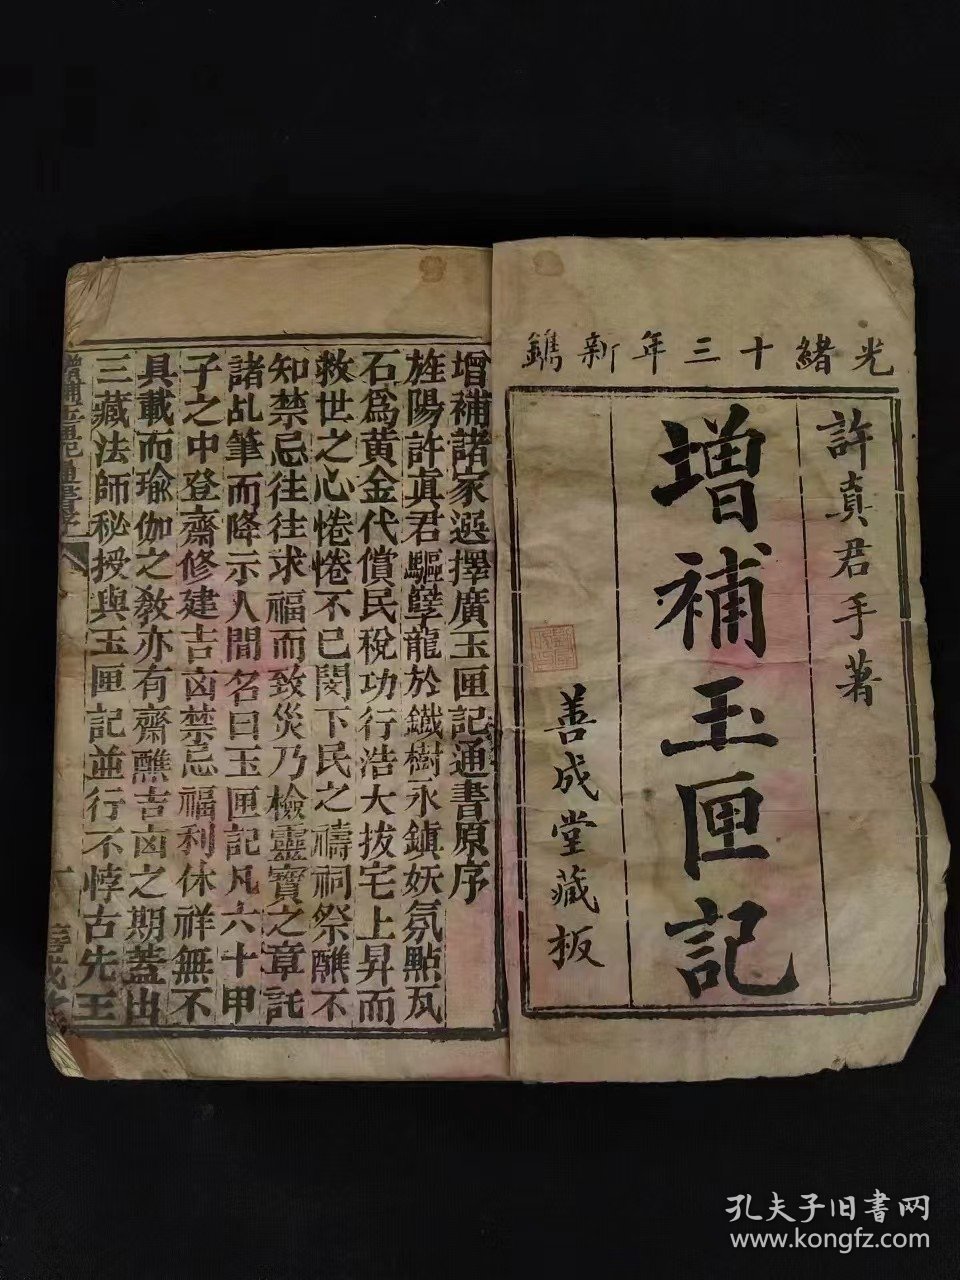 光緒十三年新鐫
許真君手著
增補玉匣記
善成堂藏板
增補諸家選擇廣玉匣記通書原序
旌陽許真君驅孽龍於鐵樹永鎮妖氛點瓦
石爲黃金代償民稅功行浩大拔宅上昇而
救世之心惓惓不已閔下民之禱祠祭醮不
知禁忌往往求福而致災乃檢靈寶之章託
諸乩筆而降示人間名曰玉匣記凡六十甲
子之中登齋修建吉凶禁忌福利休祥無不
具載而瑜伽之教亦有齋醮吉凶之期蓋出
三藏法師秘授與玉匣記並行不悖古先王
增補玉匣記通書序
一
孔夫子旧书网
www.kongfz.com